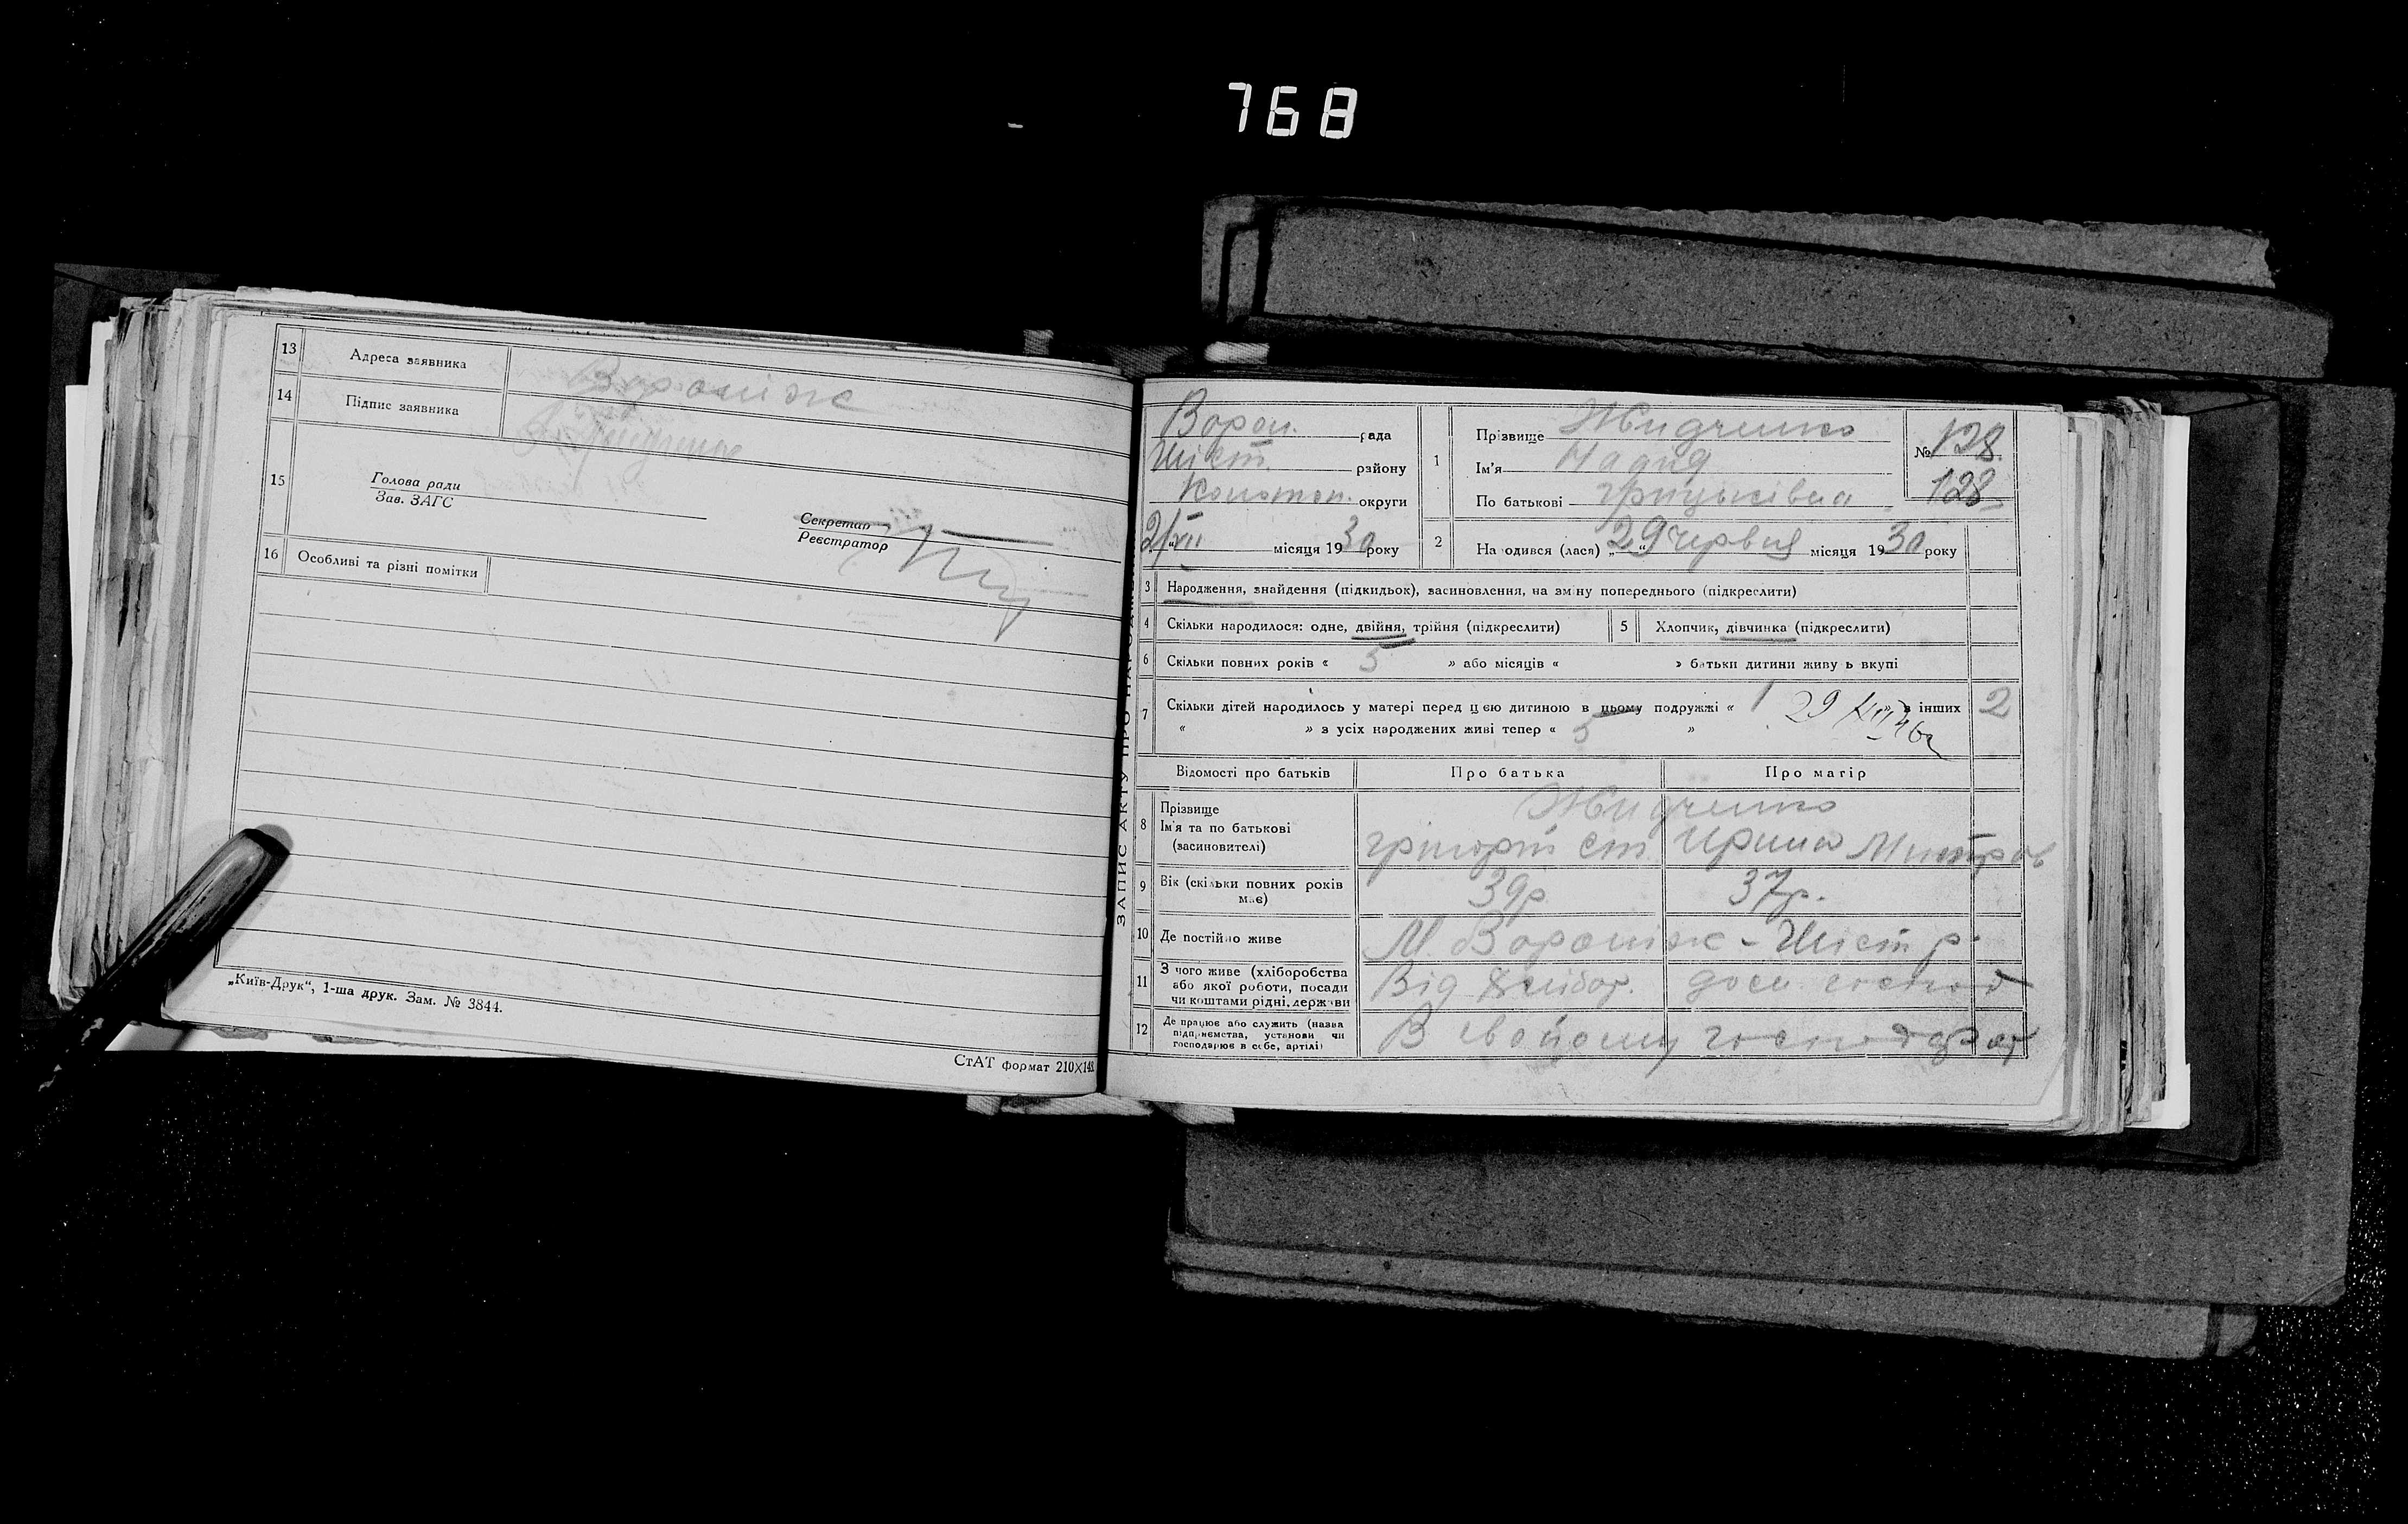 768
13 Адреса заявника Вороніж
14 Підпис заявника
15 Голова ради
Зав. ЗАГС
Секретар
Реєстратор
16 Особливі та різні помітки
„Київ-Друк“, 1-ша друк. Зам. № 3844.
СтАТ формат 210×148
ЗАПИС АКТУ ПРО НАРОДЖЕННЯ
Ворон. рада
Шіст. району
Конотоп. округи
2/VII місяця 1930 року
1 Прізвище Жидченко
Ім'я Надія
По батькові Грицьківна
№ 128.
128
2 Народився (лася) „29“ червня місяця 1930 року
3 Народження, знайдення (підкидьок), засиновлення, на зміну попереднього (підкреслити)
4 Скільки народилося: одне, двійня, трійня (підкреслити) 5 Хлопчик, дівчинка (підкреслити)
6 Скільки повних років « 5 » або місяців « » батьки дитини живуть вкупі
7 Скільки дітей народилось у матері перед цією дитиною в цьому подружжі « 1 в інших 2
« » з усіх народжених живі тепер « 5 »
Відомості про батьків Про батька Про матір
8 Прізвище Жидченко
Ім'я та по батькові
(засиновителі) Григорій Ст. Ирина
9 Вік (скільки повних років має) 39р 37р.
10 Де постійно живе М. Вороніж - Шіст р.
11 З чого живе (хліборобства
або якої роботи, посади
чи коштами рідні, держави Від хлібор. дом. господ
12 Де працює або служить (назва
підприємства, установи чи
господарює в себе, артілі) В свойому господар